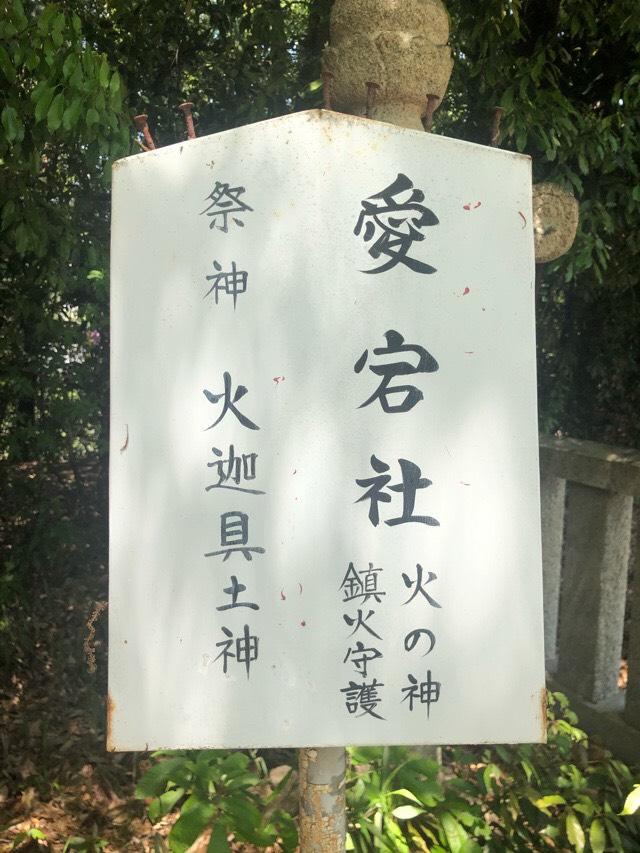 愛宕社
火の神
鎮火守護
祭神 火迦具土神